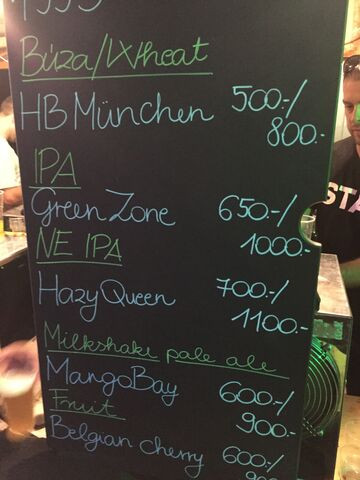 Búza/Wheat
HB München 500.-/
800.-
IPA
Green Zone 650.-/
1000.-
NE IPA
Hazy Queen 700.-/
1100.-
Milkshake pale ale
MangoBay 600.-/
900.-
Fruit
Belgian cherry 600.-/
STA